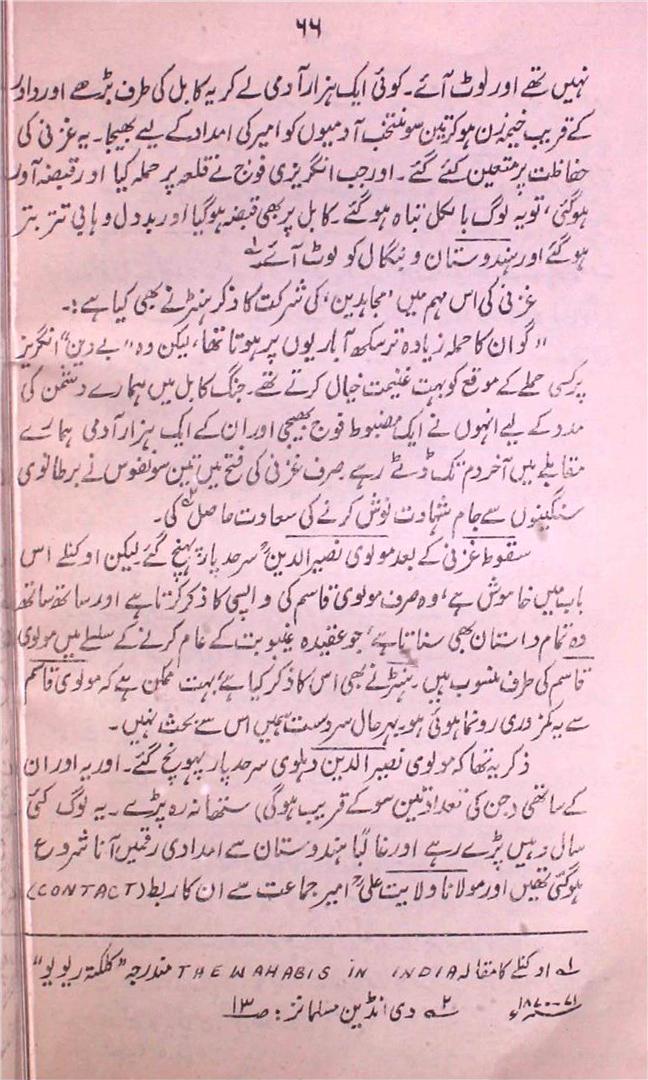 ۶۶
نہیں تھے اور لوٹ آئے۔ کوئی ایک ہزار آدمی لے کر یہ کابل کی طرف بڑھے اور دادر
کے قریب خیمہ زن ہو کر تین سو منتخب آدمیوں کو امیر کی امداد کے لیے بھیجا۔ یہ غزنی کی
حفاظت پر متعین کئے گئے۔ اور جب انگریزی فوج نے قلعہ پر حملہ کیا اور قبضہ آور
ہوگئی، تو یہ لوگ بالکل تباہ ہو گئے۔ کابل پر بھی قبضہ ہوگیا اور بددل وہابی تتر بتر
ہو گئے اور ہندوستان و بنگال کو لوٹ آئے ۱؎
غزنی کی اس مہم میں ’مجاہدین‘ کی شرکت کا ذکر ہنٹر نے بھی کیا ہے :۔
"گو ان کا حملہ زیادہ تر سکھ آبادیوں پر ہوتا تھا، لیکن وہ "بے دین" انگریز
پر کسی حملے کے موقع کو بہت غنیمت خیال کرتے تھے۔ جنگ کابل میں ہمارے دشمن کی
مدد کے لیے انہوں نے ایک مضبوط فوج بھیجی اور ان کے ایک ہزار آدمی ہمارے
مقابلے میں آخر دم تک ڈٹے رہے۔ صرف غزنی کی فتح میں تین سو نفوس نے برطانوی
سنگینوں سے جام شہادت نوش کرنے کی سعادت حاصل ۲؎ کی۔
سقوط غزنی کے بعد مولوی نصیر الدینؒ سرحد پار پہنچ گئے۔ لیکن اوکنلے اس
باب میں خاموش ہے، وہ صرف مولوی قاسم کی واپسی کا ذکر کرتا ہے اور ساتھ ساتھ
وہ تمام داستان بھی سناتا ہے، جو عقیدہ غیبوبت کے عام کرنے کے سلسلے میں مولوی
قاسم کی طرف منسوب ہیں۔ ہنٹر نے بھی اس کا ذکر کیا ہے، بہت ممکن ہے کہ مولوی قاسم
سے یہ کمزوری رونما ہوئی ہو۔ بہر حال سردست ہمیں اس سے بحث نہیں۔
ذکر یہ تھا کہ مولوی نصیر الدین دہلوی سرحد پار پہونچ گئے۔ اور یہ اور ان
کے ساتھی (جن کی تعداد تین سو کے قریب ہوگی) ستھانہ رہ پڑے۔ یہ لوگ کئی
سال وہیں پڑے رہے اور غالباً ہندوستان سے امدادی رقمیں آنا شروع
ہوگئی تھیں اور مولانا ولایت علیؒ امیر جماعت سے ان کا ربط (CONTACT)
۱؎ اوکنلے کا مقالہ THE WAHABIS IN INDIA مندرجہ "کلکتہ ریویو"
۷۱-۱۸۷۰ء ۲؎ دی انڈین مسلمانز: ص ۱۳